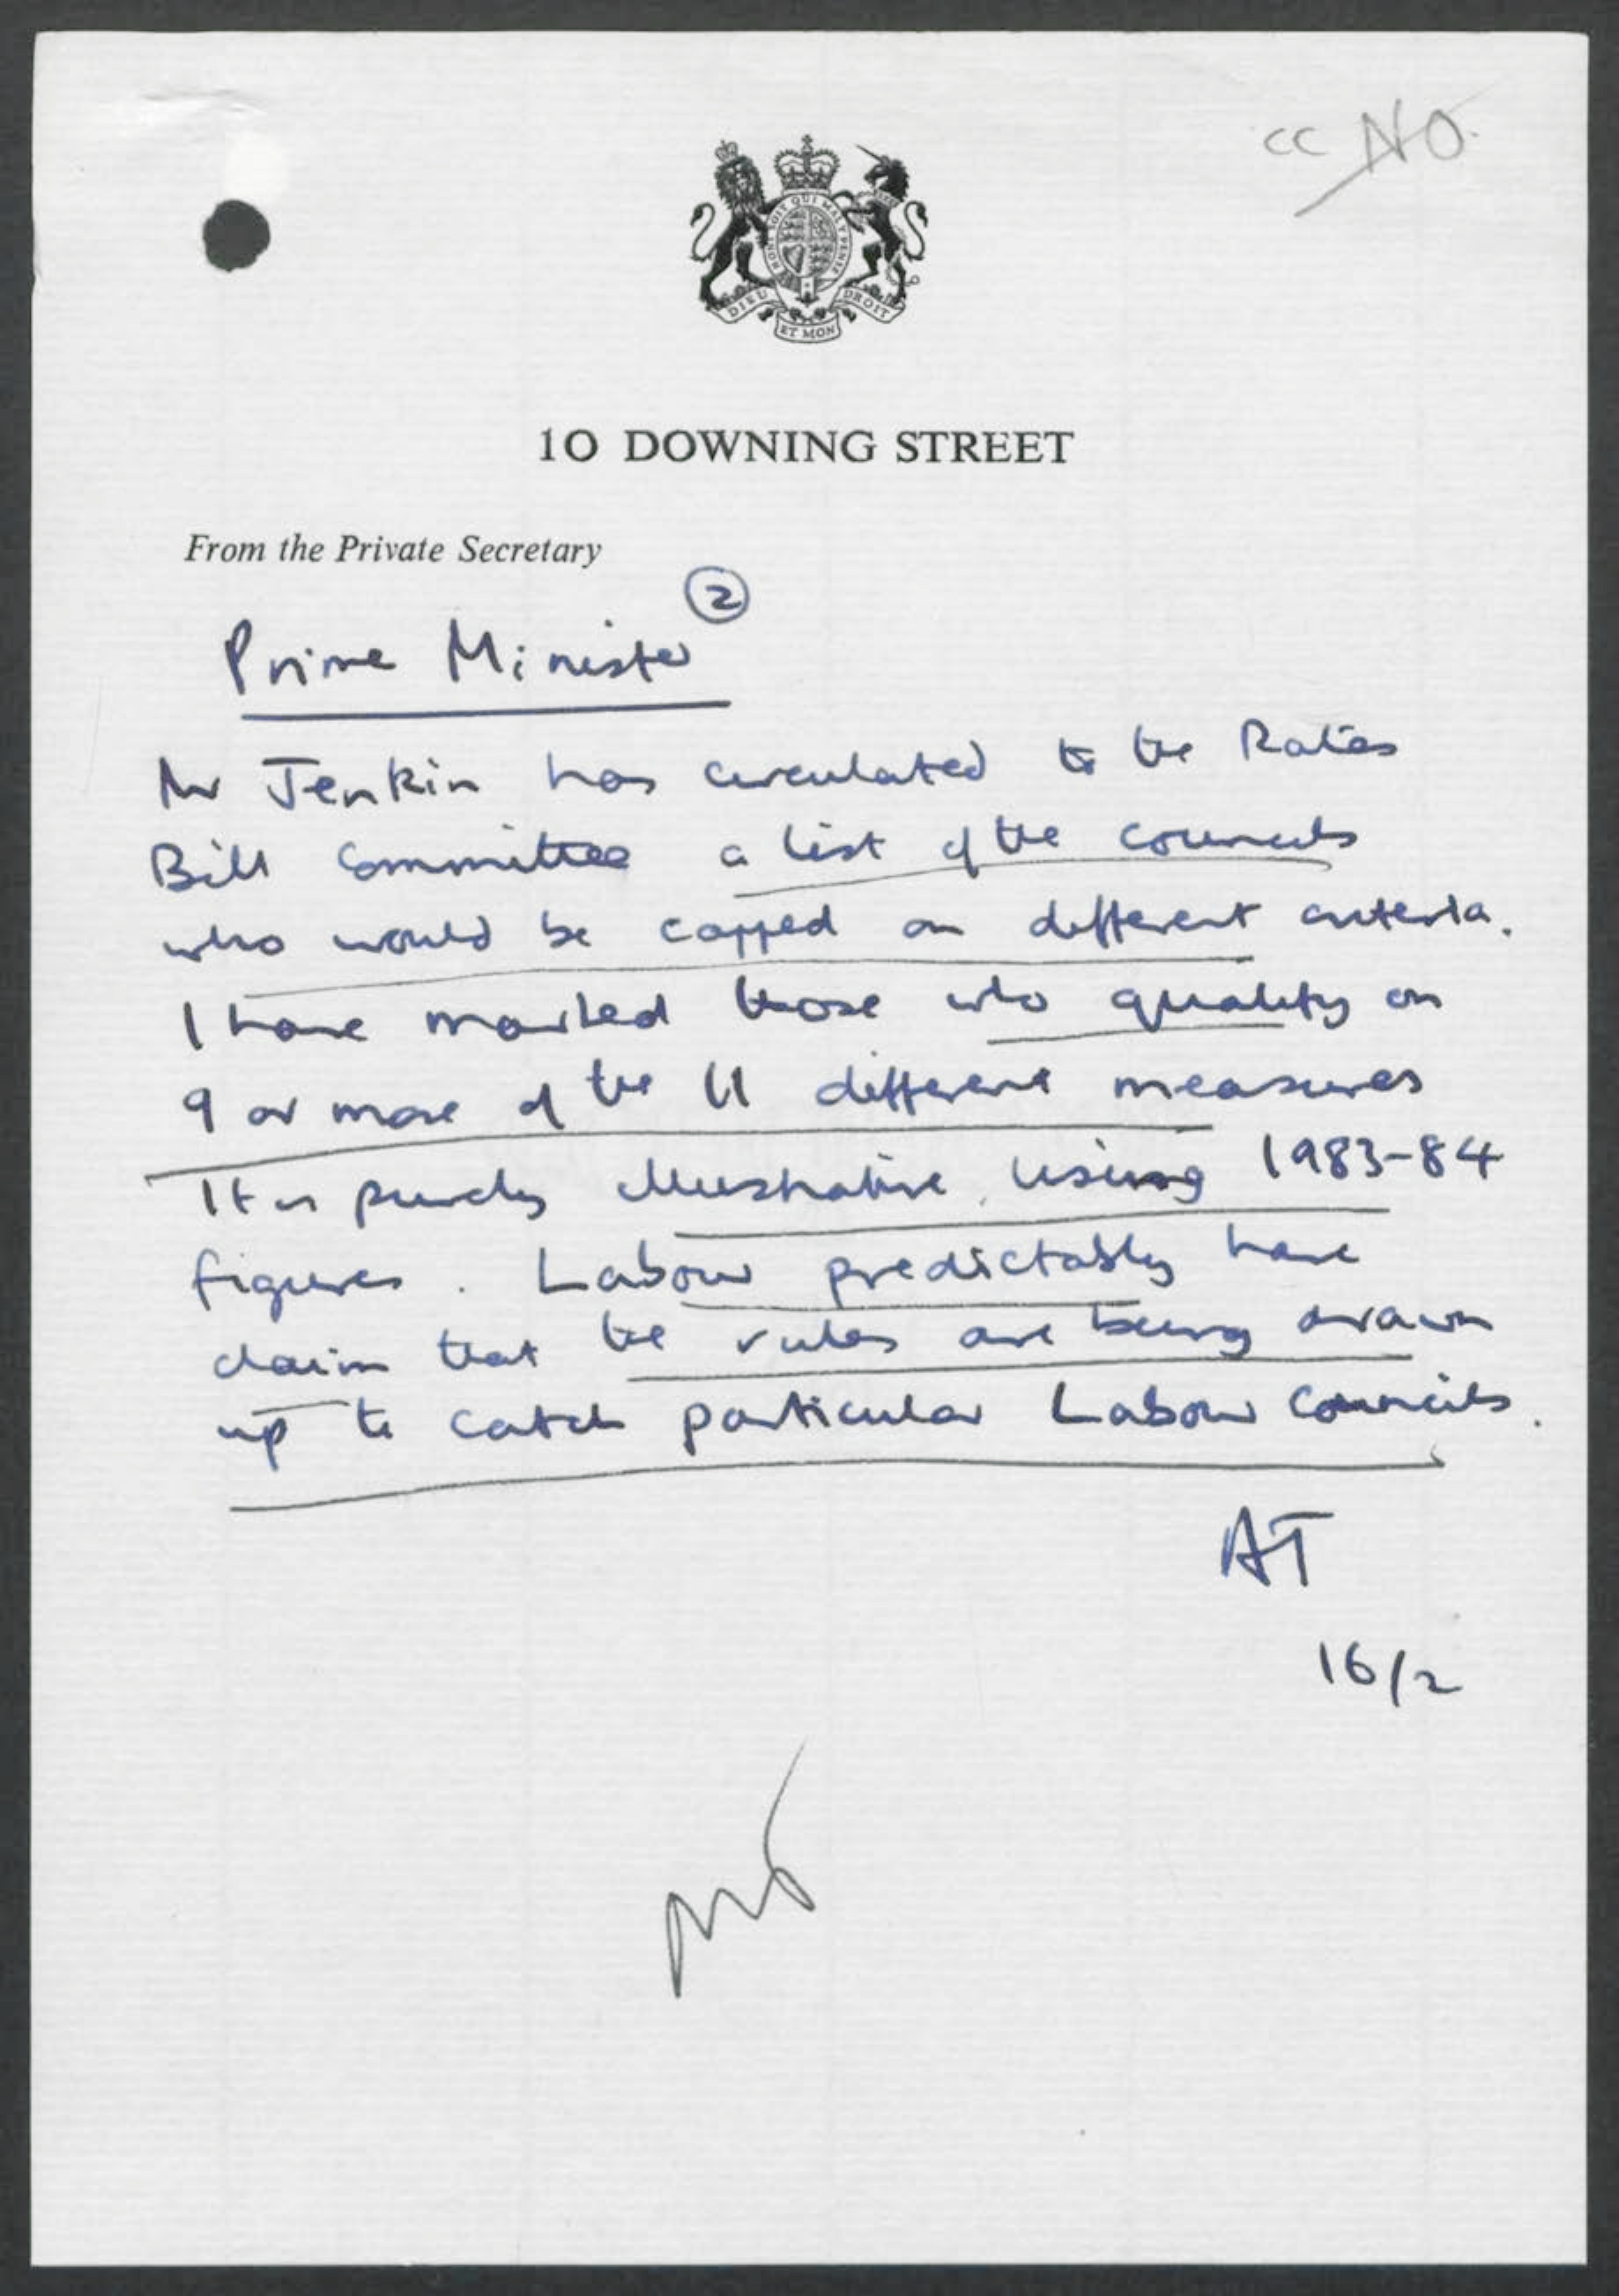 cc NO.
HONI SOIT QUI MAL Y PENSE
DIEU ET MON DROIT
10 DOWNING STREET
From the Private Secretary
2
Prime Minister
Mr Jenkin has circulated to the Rates
Bill Committee a list of the councils
who would be capped on different criteria.
I have marked those who qualify on
9 or more of the 11 different measures
It is purely illustrative, using 1983-84
figures. Labour predictably have
claim that the rules are being drawn
up to catch particular Labour Councils.
AT
16/2